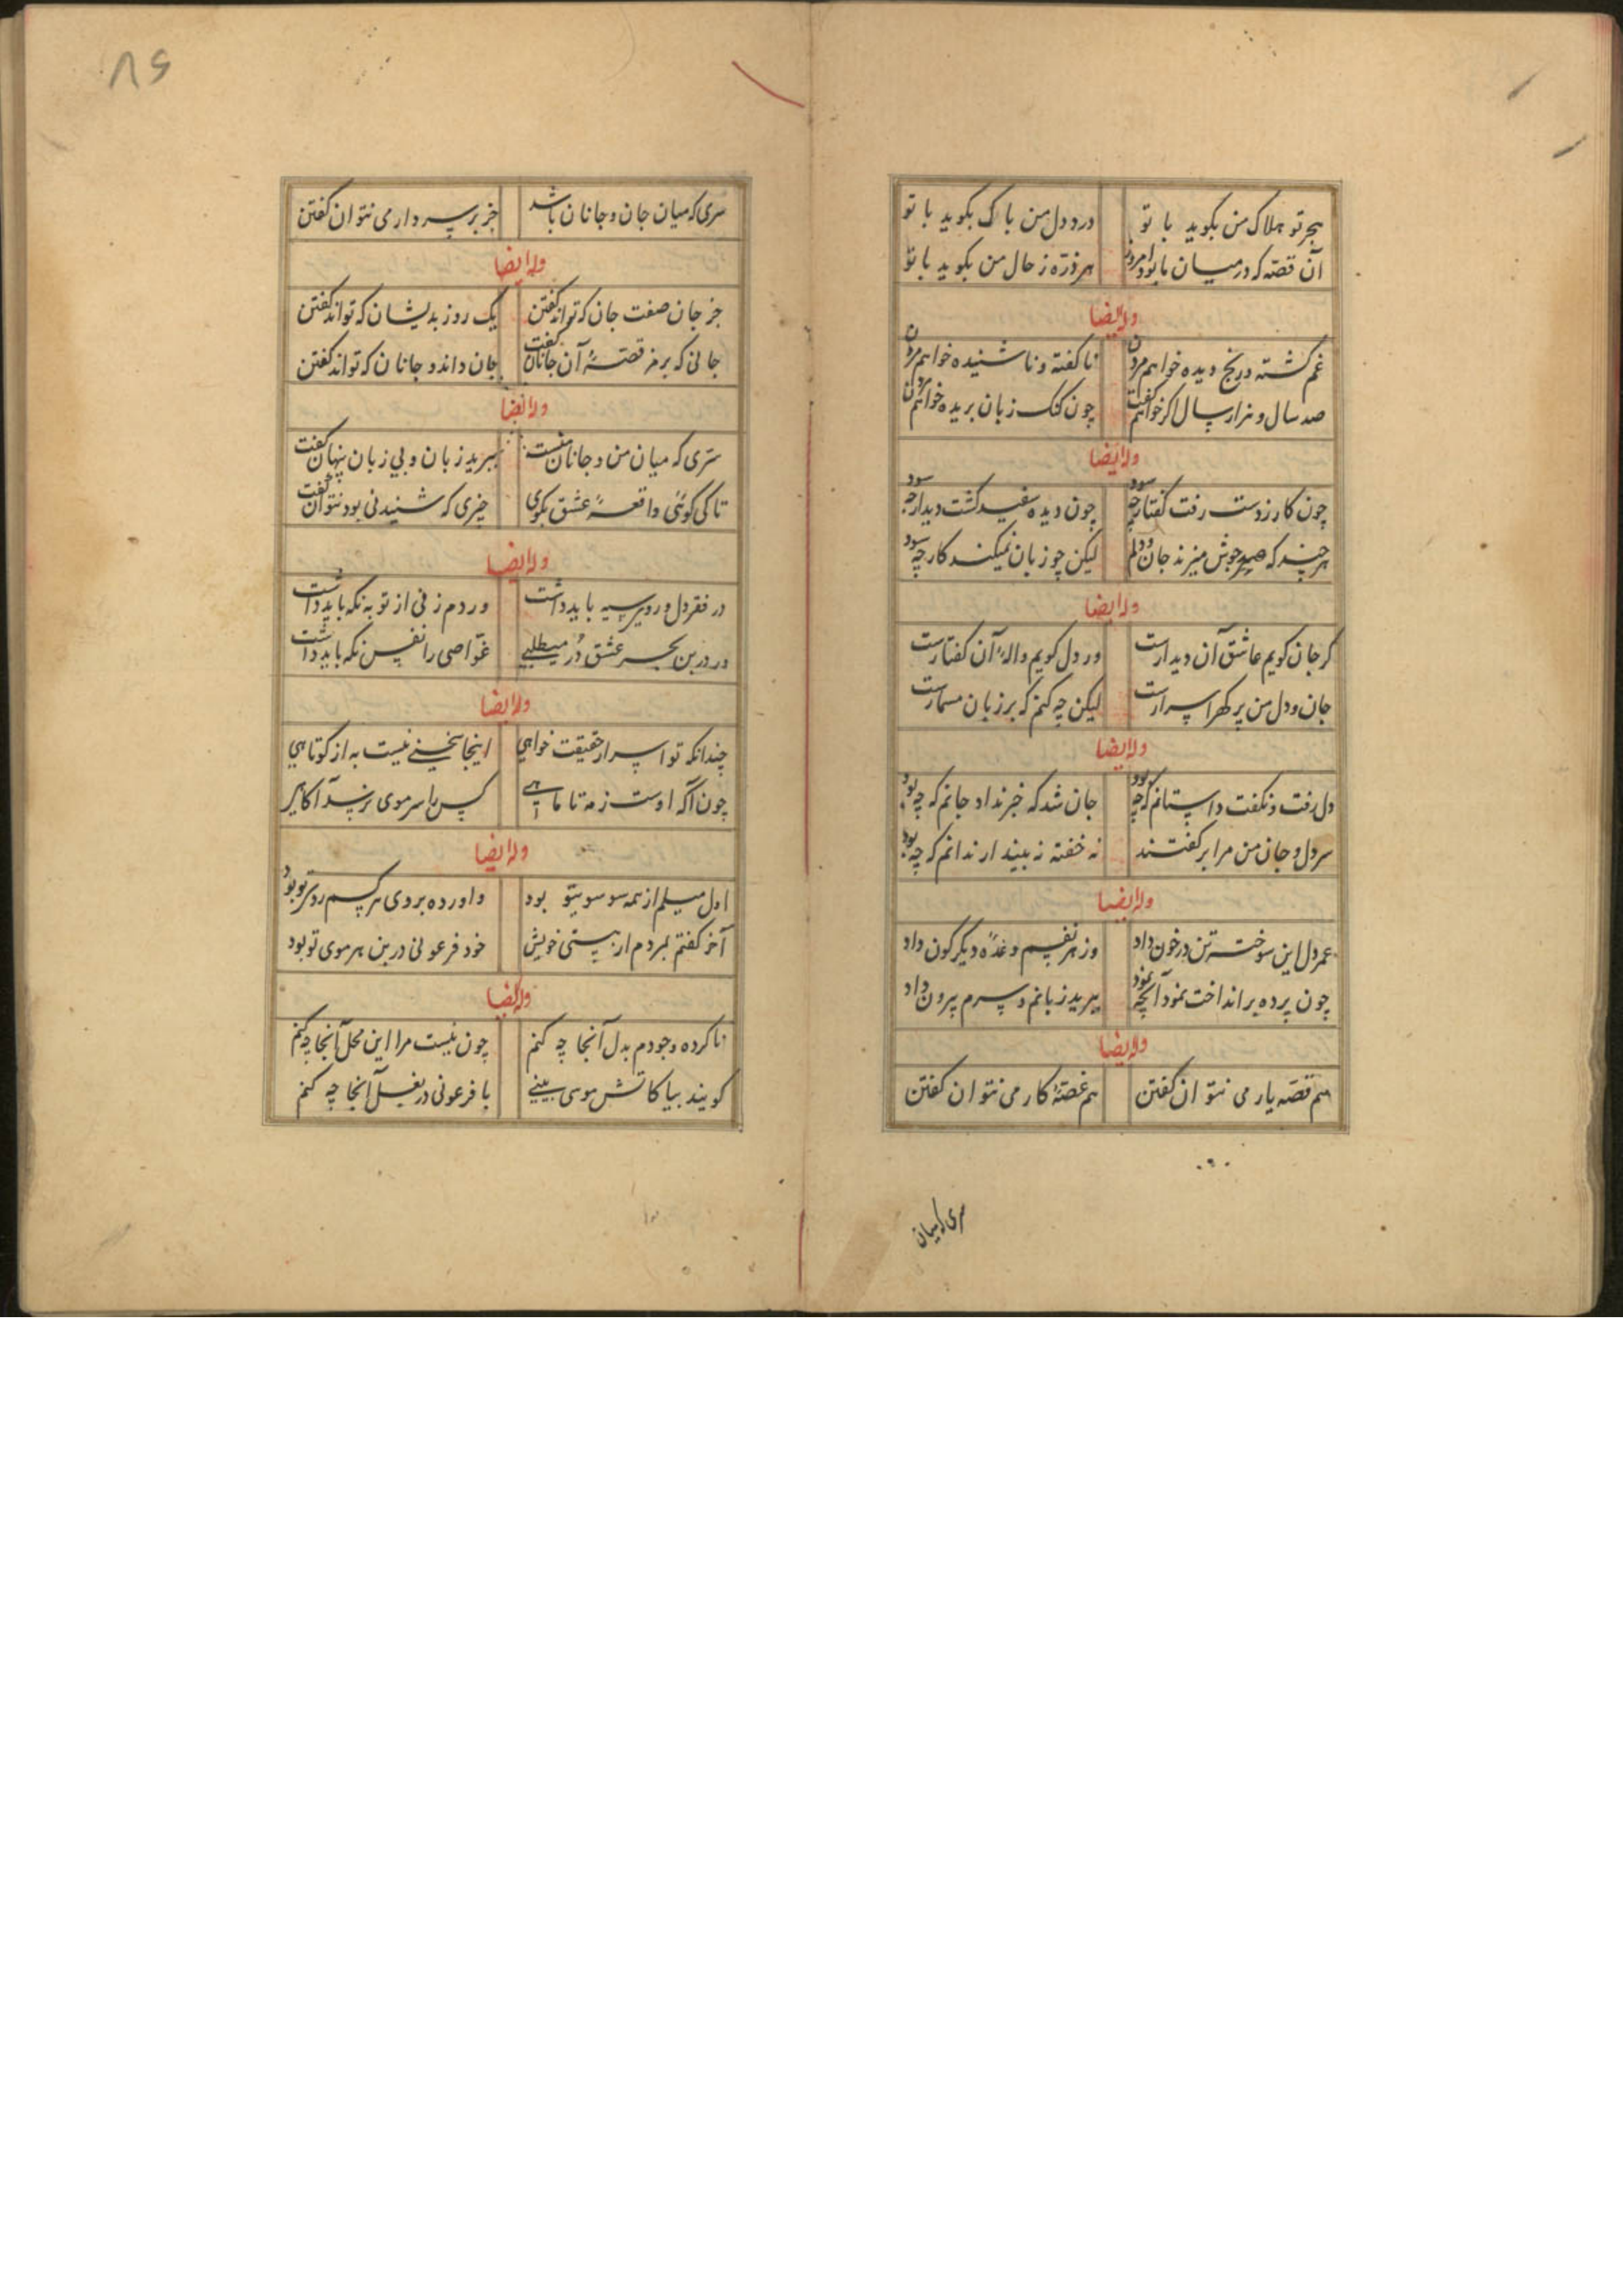 هجر تو هلاک من بگوید با تو
درد دل من باک بگوید با تو
آن قصه که در میان ما بود امروز
هر ذره ز حال من بگوید با تو
وله ایضا
غم گشته و رنج دیده خواهم مردن
ناگفته و ناشنیده خواهم مردن
صد سال و هزار سال اگر خواهم گفت
چون گنگ زبان بریده خواهم مردن
وله ایضا
چون کار ز دست رفت گفتار چه سود
چون دیده سفید گشت دیدار چه سود
هر چند که جوش میزند جان و دلم
لیکن چو زبان نمیکند کار چه سود
وله ایضا
گر جان گویم عاشق آن دیدارست
ور دل گویم واله آن گفتارست
جان و دل من پر گهر اسرارست
لیکن چه کنم که بر زبان مسمارست
وله ایضا
دل رفت و نگفت داستانم که چه بود
جان شد که خبر نداد جانم که چه بود
سر دل و جان من مرا بر گفتند
نه خفته نه بیدار ندانم که چه بود
وله ایضا
عمر دل این سوخته تن در خون داد
وز هر نفسم وعده دیگرگون داد
چون پرده برانداخت نمود آنچه نمود
ببرید زبانم و سرم بیرون داد
وله ایضا
هم قصه یار می نتوان گفتن
هم غصه کار می نتوان گفتن
سری که میان
۸۶
سری که میان جان و جانان باشد
جز بر سر دار می نتوان گفتن
وله ایضا
جز جان صفت جان که تواند گفتن
یک روز بدیشان که تواند گفتن
جانی که برمز قصه آن جانان گفت
جان داند و جانان که تواند گفتن
وله ایضا
سری که میان من و جانان منست
ببرید زبان و بی زبان پنهان گفت
تا کی گوئی واقعه عشق بگوی
چیزی که شنیدنی بود نتوان گفت
وله ایضا
در فقر دل و روی سیه باید داشت
ور دم زنی از توبه نگه باید داشت
ور در بن بحر عشق در میطلبی
غواصی را نفس نگه باید داشت
وله ایضا
چندانکه تو اسرار حقیقت خواهی
اینجا سخنی نیست به از کوتاهی
چون آگه اوست ز مه تا ماهی
کس را سر موی نرسد آگاهی
وله ایضا
اول میلم از همه سو سوی تو بود
واورده بروی هر کسم روی تو بود
آخر گفتم بمردم از هستی خویش
خود فرعونی در بن هر موی تو بود
وله ایضا
ناکرده وجودم بدل آنجا چه کنم
چون نیست مرا این محل آنجا چه کنم
گویند بیا کاتش موسی بینی
با فرعونی در بغل آنجا چه کنم